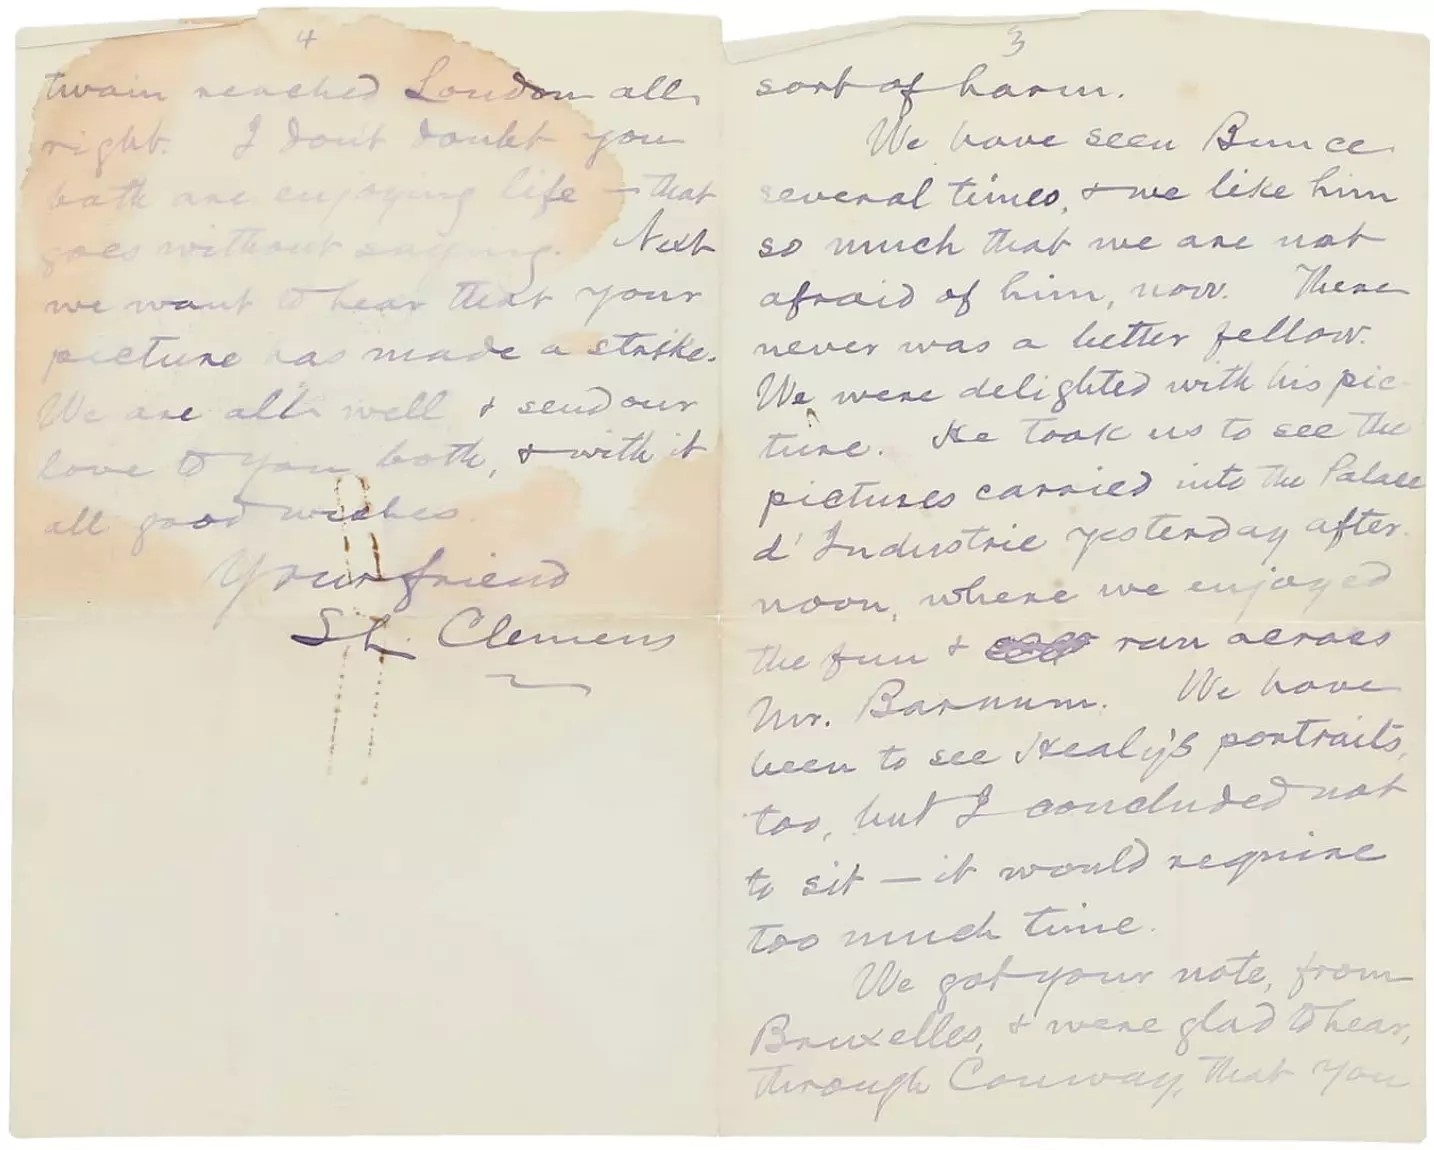 3
sort of harm.
We have seen Bunce
several times, & we like him
so much that we are not
afraid of him, now. There
never was a better fellow.
We were delighted with his pic-
ture. He took us to see the
pictures carried into the Palace
d'Industrie yesterday after-
noon, where we enjoyed
the fun & ran across
Mr. Barnum. We have
been to see Healy's portraits,
too, but I concluded not
to sit — it would require
too much time.
We got your note, from
Bruxelles, & were glad to hear,
through Conway, that you
4
twain reached London all
right. I don't doubt you
both are enjoying life — that
goes without saying. Next
we want to hear that your
picture has made a strike.
We are all well & send our
love to you both, & with it
all good wishes.
Your friend
SL. Clemens